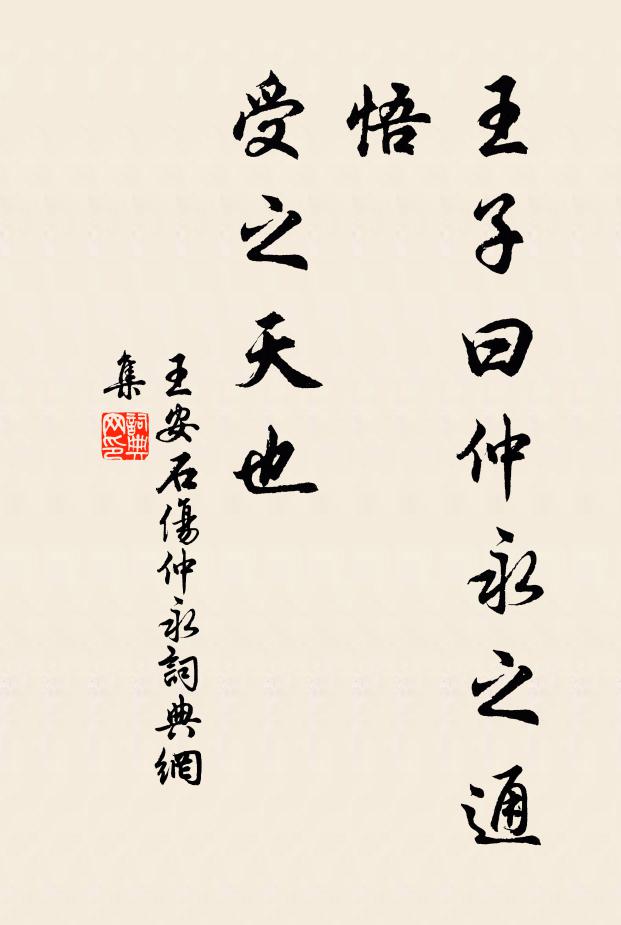 王子曰仲永之通
悟
受之天也
王安石傷仲永詞典網
集
詞典
网印